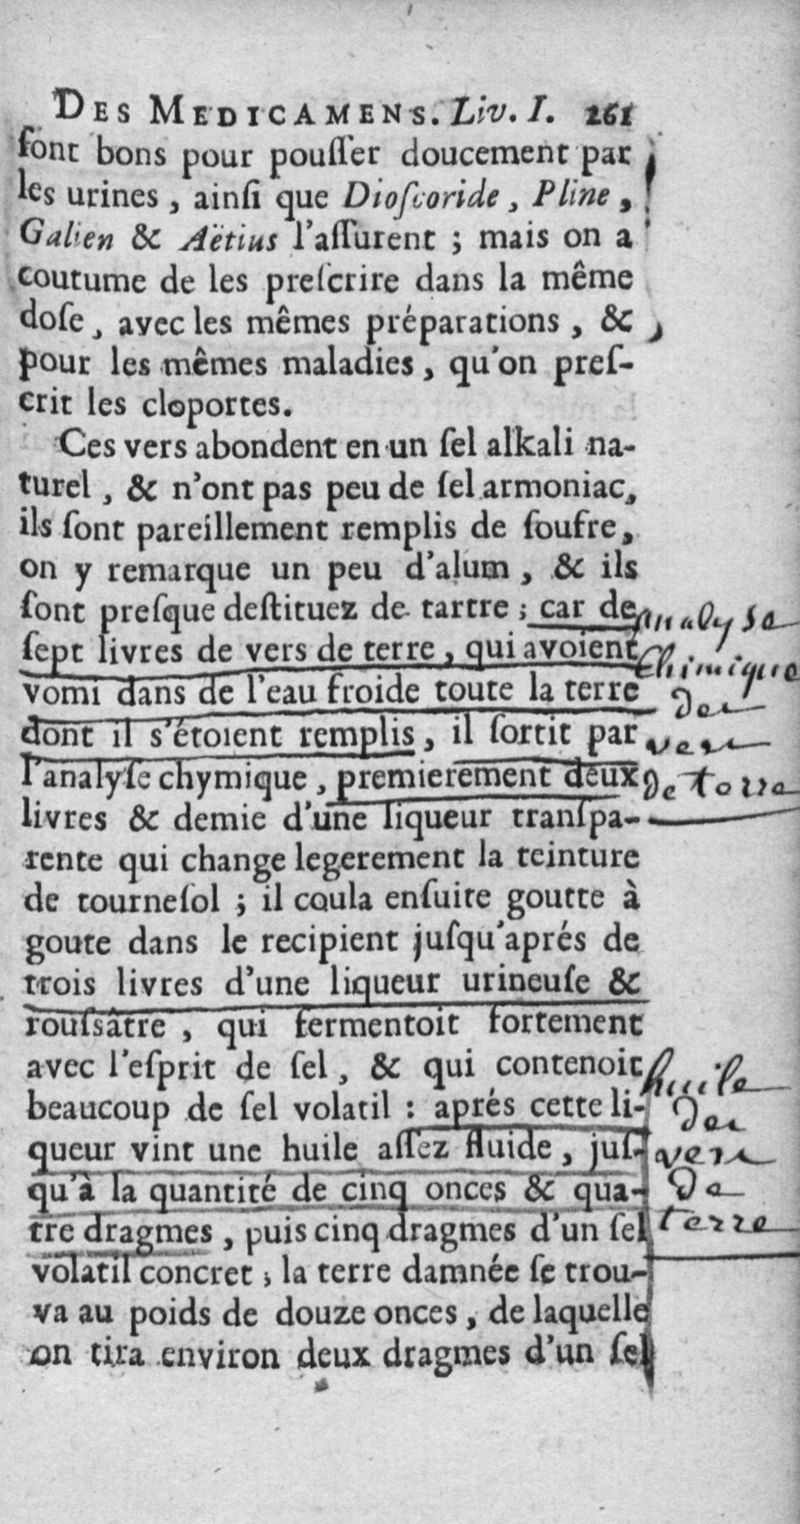 DES MEDICAMENS. Liv. I. 261
ſont bons pour pouſſer doucement par
les urines, ainſi que Dioſcoride, Pline,
Galien & Aëtius l'aſſurent ; mais on a
coutume de les preſcrire dans la même
doſe, avec les mêmes préparations, &
pour les mêmes maladies, qu'on preſ-
crit les cloportes.
Ces vers abondent en un ſel alkali na-
turel, & n'ont pas peu de ſel armoniac,
ils ſont pareillement remplis de ſoufre,
on y remarque un peu d'alum, & ils
ſont preſque deſtituez de tartre ; car de
ſept livres de vers de terre, qui avoient
vomi dans de l'eau froide toute la terre
dont il s'étoient remplis, il ſortit par
l'analyſe chymique, premierement deux
livres & demie d'une liqueur tranſpa-
rente qui change legerement la teinture
de tourneſol ; il coula enſuite goutte à
goute dans le recipient juſqu'aprés de
trois livres d'une liqueur urineuſe &
rouſsâtre, qui fermentoit fortement
avec l'eſprit de ſel, & qui contenoit
beaucoup de ſel volatil : aprés cette li-
queur vint une huile aſſez fluide, juſ-
qu'à la quantité de cinq onces & qua-
tre dragmes, puis cinq dragmes d'un ſel
volatil concret ; la terre damnée ſe trou-
va au poids de douze onces, de laquelle
on tira environ deux dragmes d'un ſel
analyse
Chimique
des
vers
de terre
huile
des
vers
de
terre